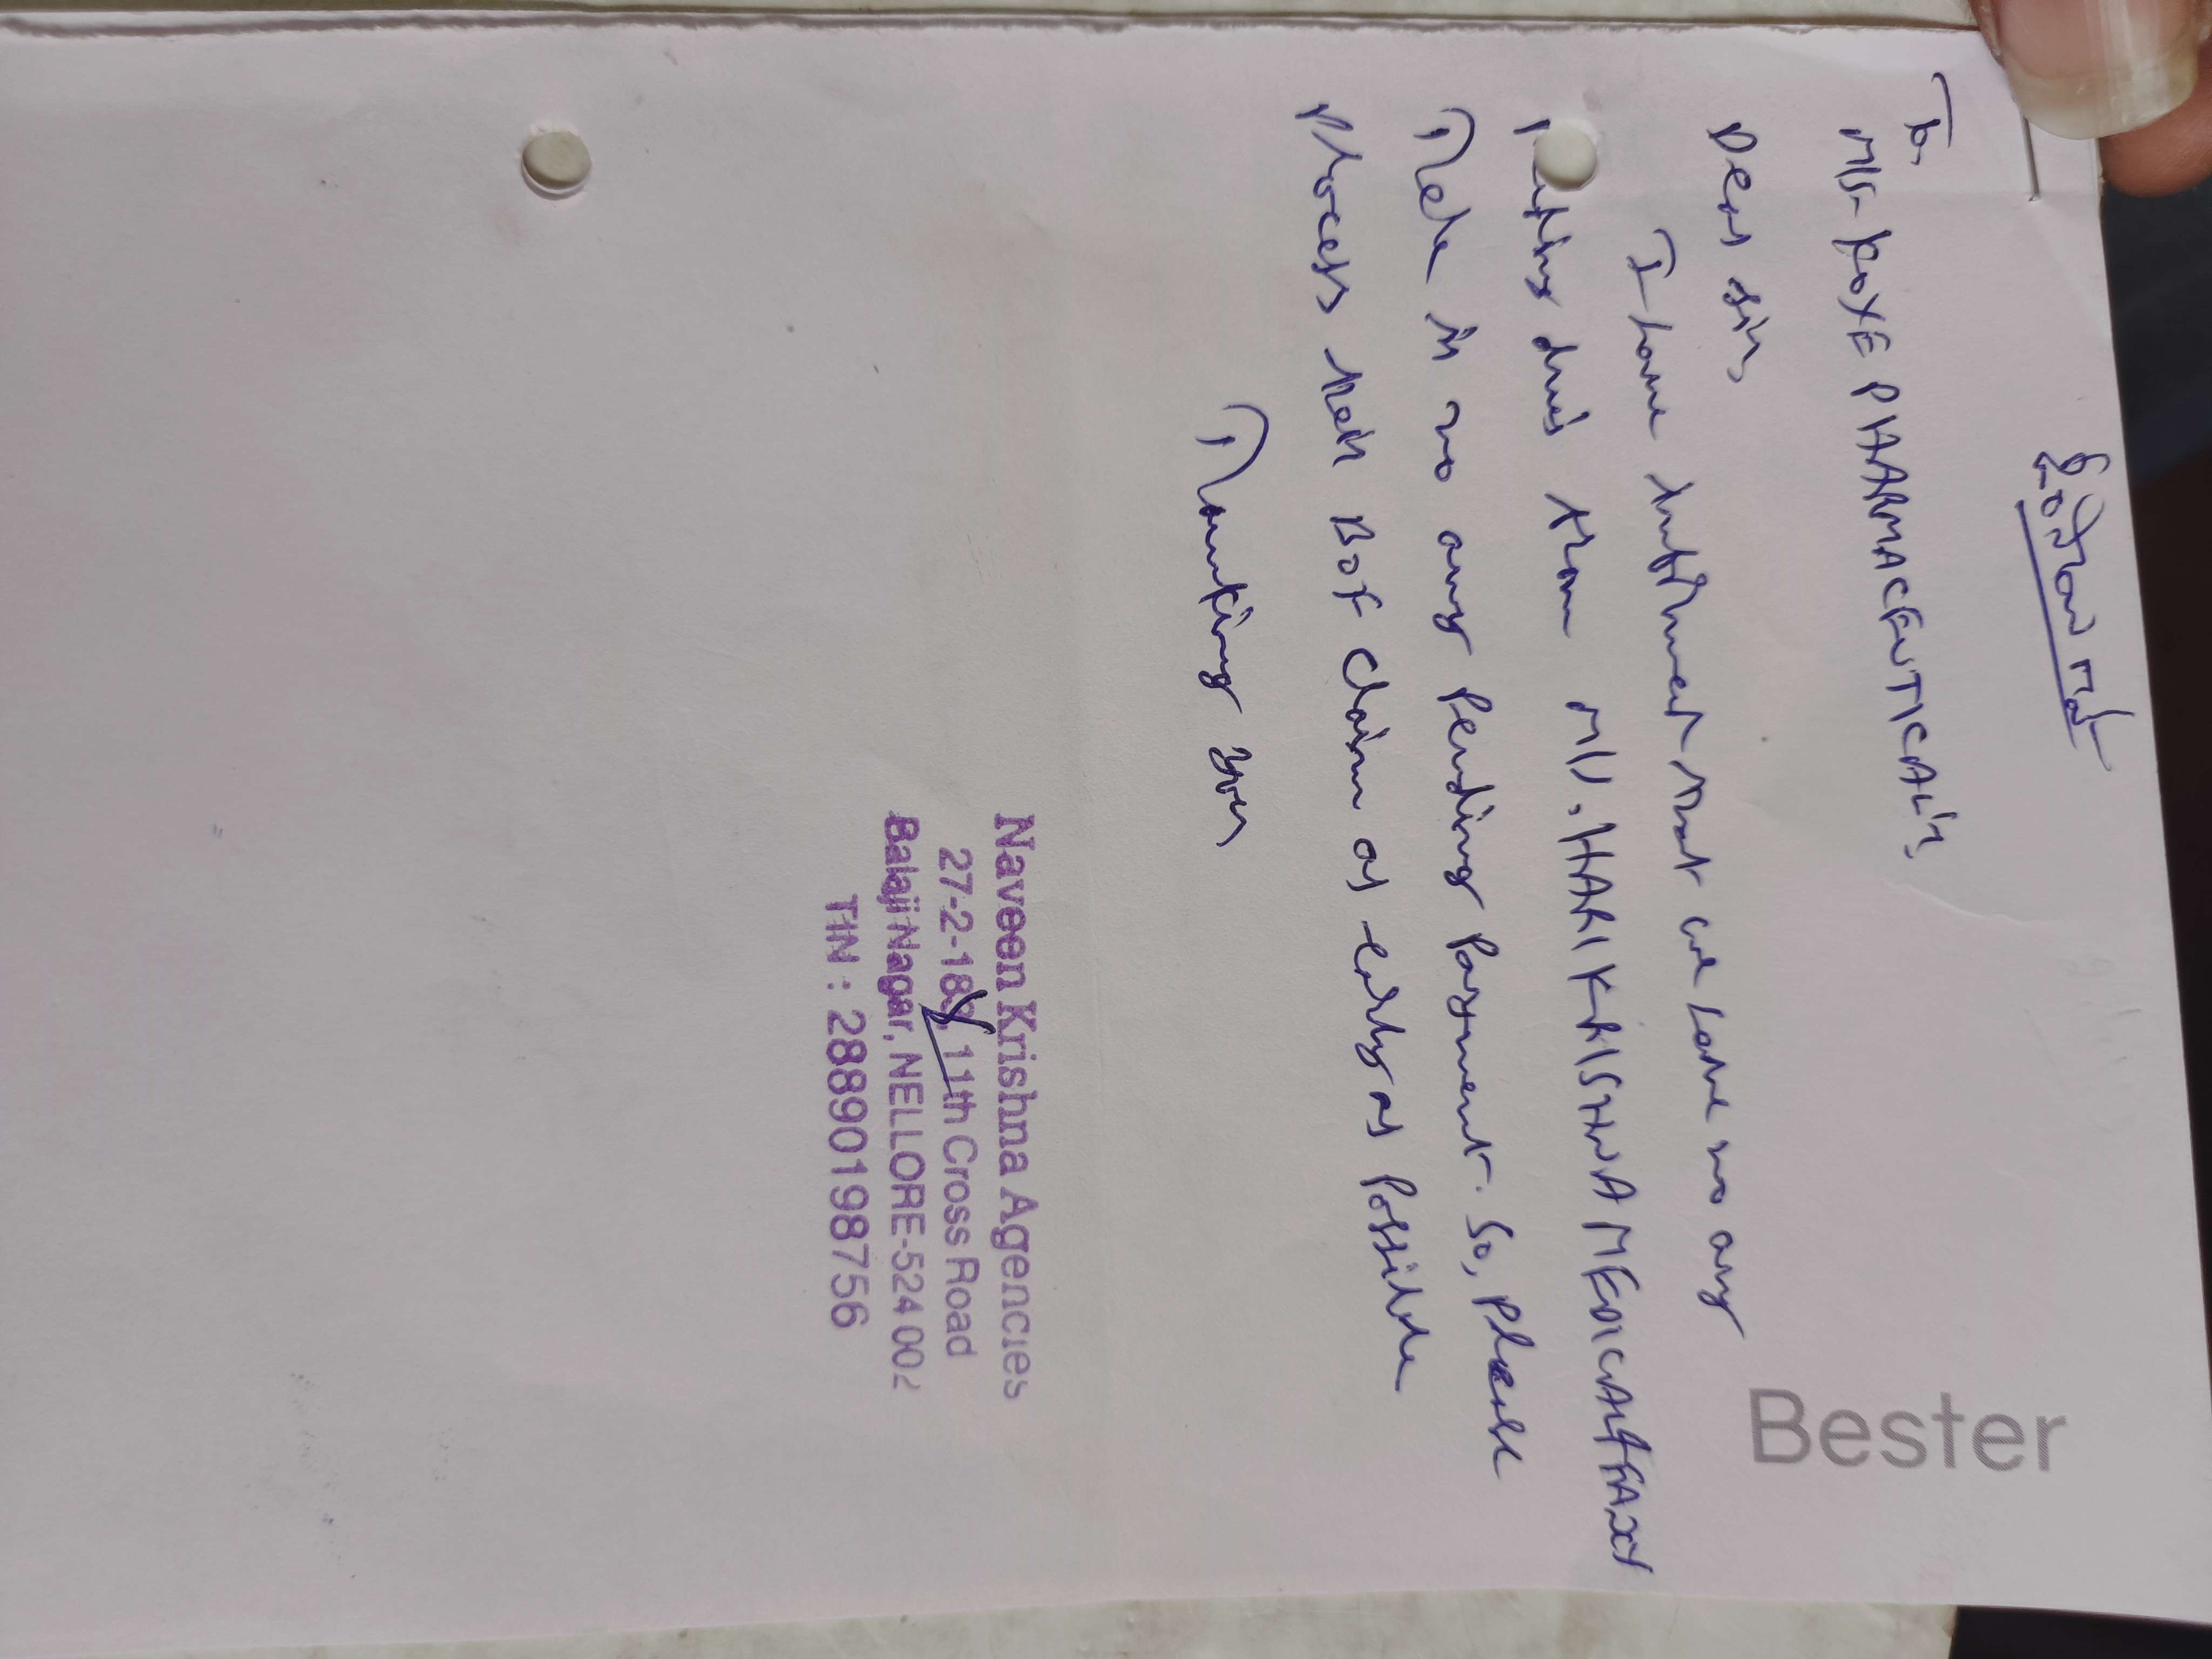 To,
M/s- PHARMACEUTICAL's,
Dear sir,
I have that we have no any
dues from M/s. HARIKRISHNA MEDICAL & FANCY
There is no any Pending Payment. So, Please
Process their Claim as early as Possible
Thanking you
Naveen Krishna Agencies
11th Cross Road
Balaji Nagar, NELLORE-524 002
TIN : 28890198756
Bester